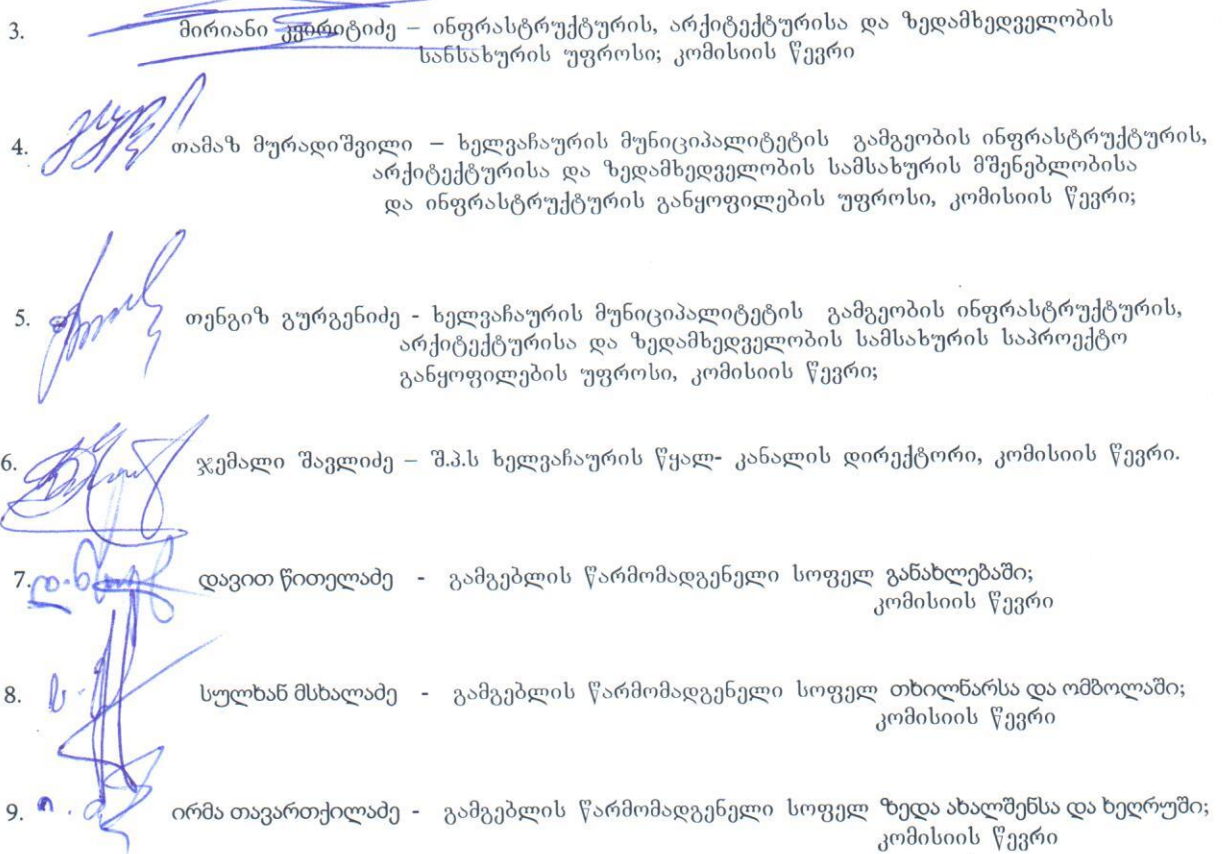 3. მირიანი კვირიტიძე – ინფრასტრუქტურის, არქიტექტურისა და ზედამხედველობის
სანსახურის უფროსი; კომისიის წევრი
4. თამაზ მურადიშვილი – ხელვაჩაურის მუნიციპალიტეტის გამგეობის ინფრასტრუქტურის,
არქიტექტურისა და ზედამხედველობის სამსახურის მშენებლობისა
და ინფრასტრუქტურის განყოფილების უფროსი, კომისიის წევრი;
5. თენგიზ გურგენიძე - ხელვაჩაურის მუნიციპალიტეტის გამგეობის ინფრასტრუქტურის,
არქიტექტურისა და ზედამხედველობის სამსახურის საპროექტო
განყოფილების უფროსი, კომისიის წევრი;
6. ჯემალი შავლიძე – შ.პ.ს ხელვაჩაურის წყალ- კანალის დირექტორი, კომისიის წევრი.
7. დავით წითელაძე - გამგებლის წარმომადგენელი სოფელ განახლებაში;
კომისიის წევრი
8. სულხან მსხალაძე - გამგებლის წარმომადგენელი სოფელ თხილნარსა და ომბოლაში;
კომისიის წევრი
9. ირმა თავართქილაძე - გამგებლის წარმომადგენელი სოფელ ზედა ახალშენსა და ხეღრუში;
კომისიის წევრი